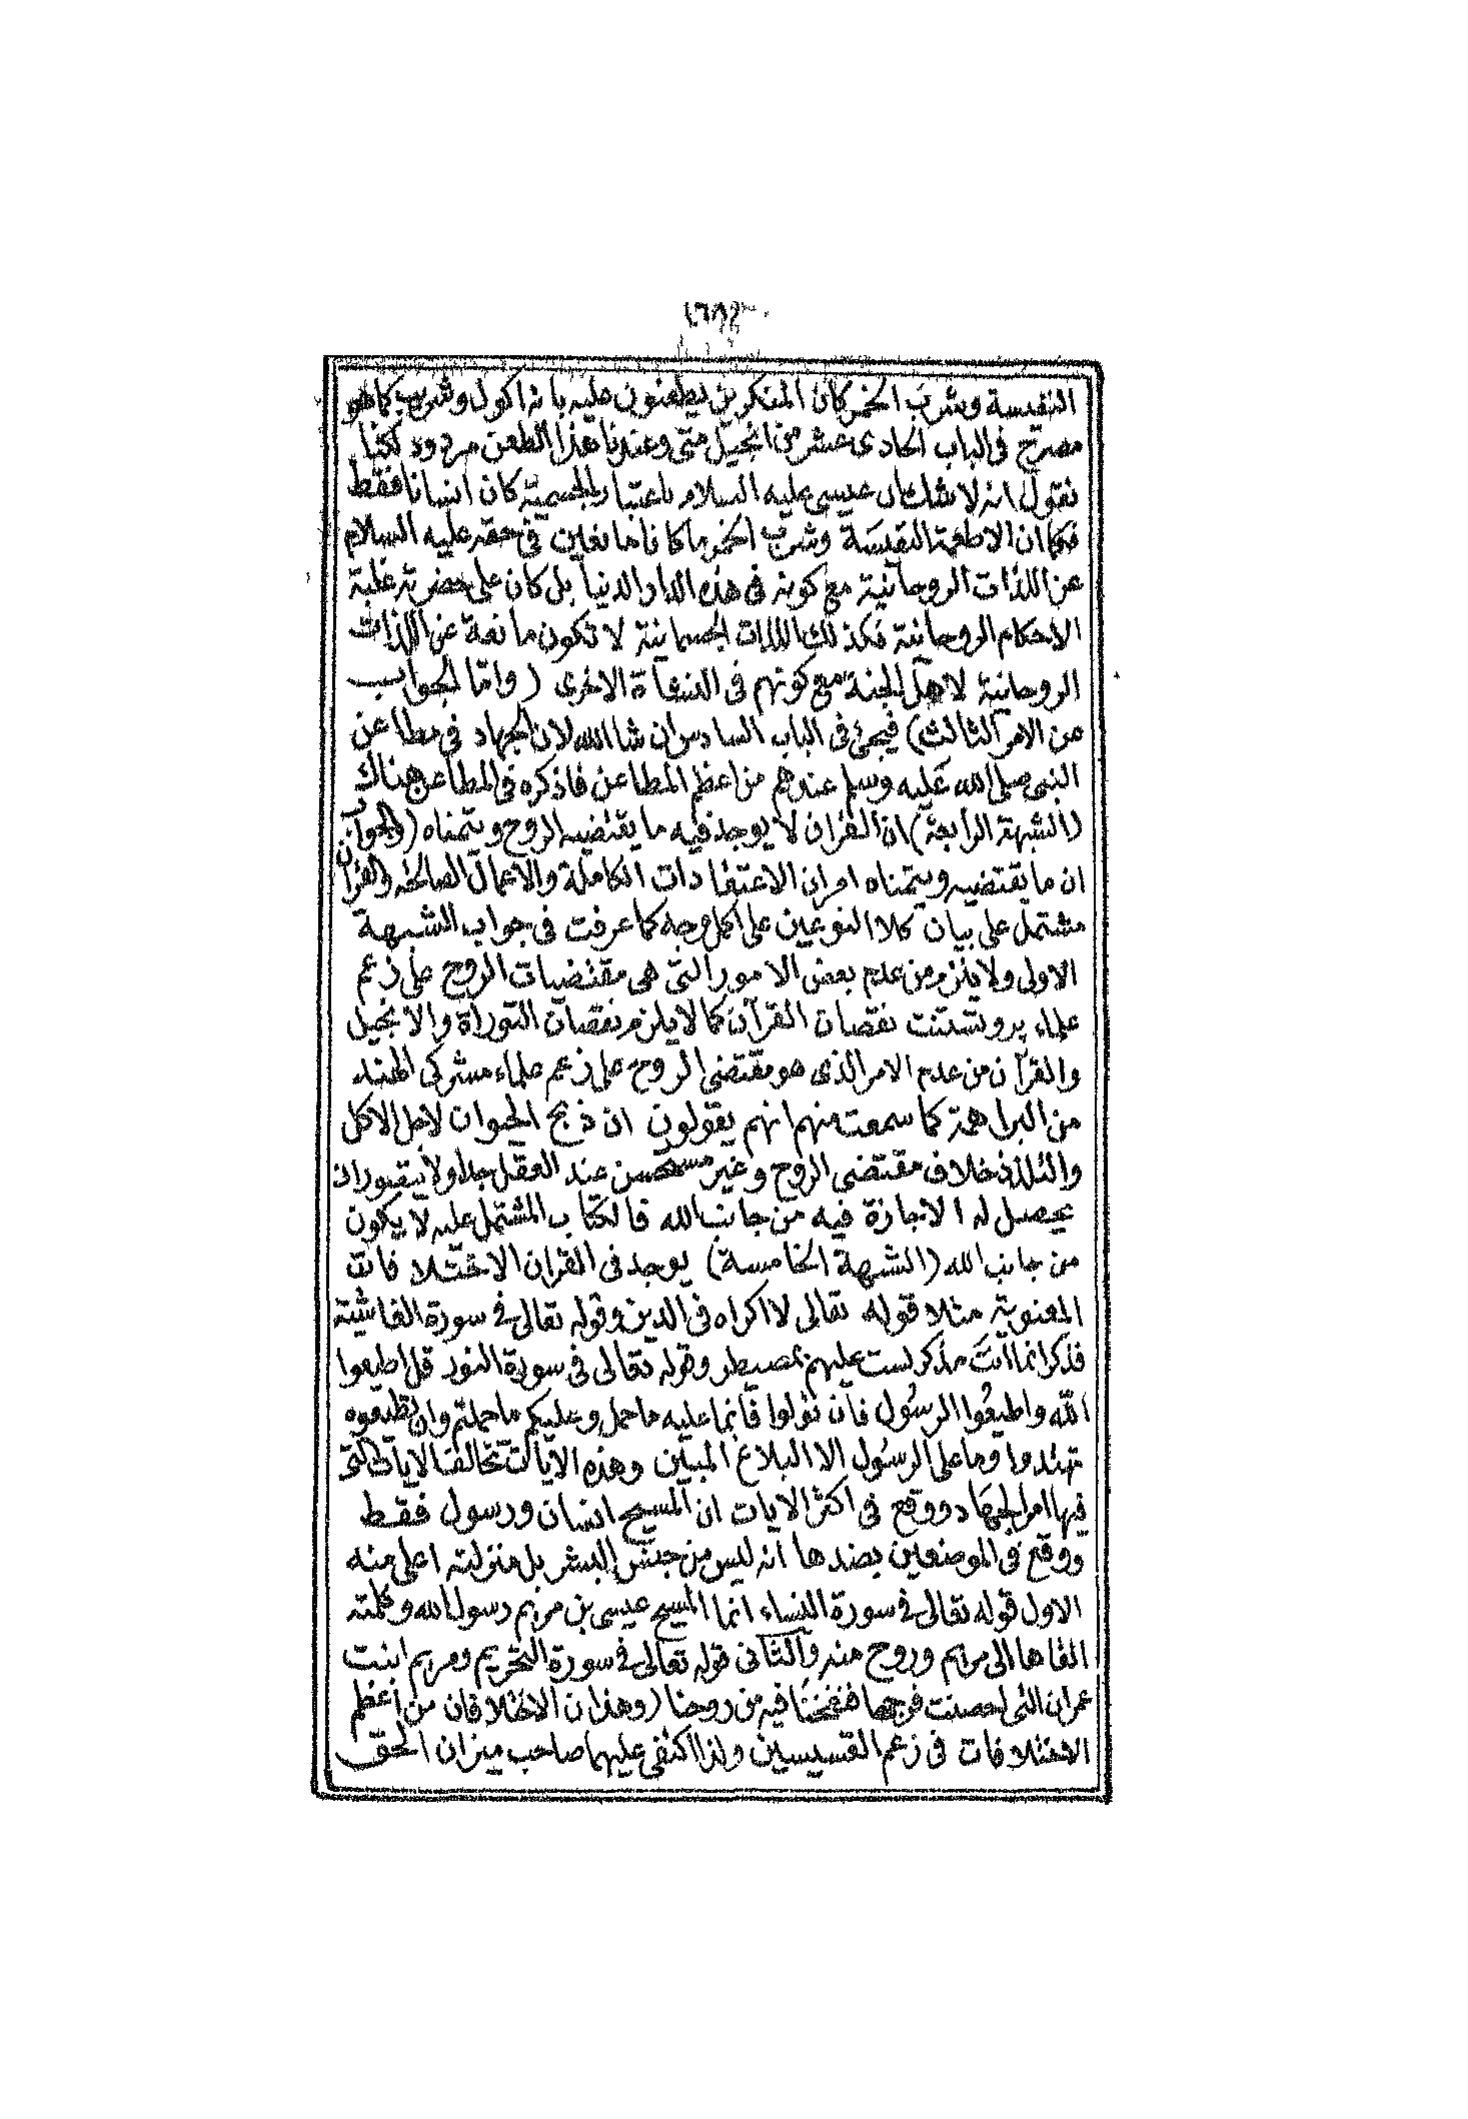 النفيسة وشرب الخمر كان المنكرين يطعنون عليه بانه اكول وشريب كما هو
مصرح فى الباب الحادى عشر من انجيل متى وعندنا هذا الطعن مردود لكنا
نقول انه لا شك ان عيسى عليه السلام باعتبار الجسمية كان انسانا فقط
فكما ان الاطعمة النفيسة وشرب الخمر ما كانا مانعين فى حقه عليه السلام
عن اللذات الروحانية مع كونه فى هذه الدار الدنيا بل كان على حضرته غلبة
الاحكام الروحانية فكذلك اللذات الجسمانية لا تكون مانعة عن اللذات
الروحانية لاهل الجنة مع كونهم فى النشأة الاخرى (واما الجواب
عن الامر الثالث) فيجئ فى الباب السادس ان شا الله لان الجهاد فى مطاعن
النبى صلى الله عليه وسلم عندهم من اعظم المطاعن فاذكره فى المطاعن هناك
(الشبهة الرابعة) ان القران لا يوجد فيه ما يقتضيه الروح ويتمناه (والجواب)
ان ما يقتضيه ويتمناه امران الاعتقادات الكاملة والاعمال الصالحة والقرآن
مشتمل على بيان كلا النوعين على اكمل وجه كما عرفت فى جواب الشبهة
الاولى ولا يلزم من عدم بعض الامور التى هى مقتضيات الروح على زعم
علماء پروتستنت نقصان القرآن كما لا يلزم نقصان التوراة والانجيل
والقرآن من عدم الامر الذى هو مقتضى الروح على زعم علماء مشركى الهند
من البراهمة كما سمعت منهم انهم يقولون ان ذبح الحيوان لاجل الاكل
والتلذذ خلاف مقتضى الروح وغير مستحسن عند العقل جدا ولا يتصور ان
يحصل له الاجازة فيه من جانب الله فالكتاب المشتمل عليه لا يكون
من جانب الله (الشبهة الخامسة) يوجد فى القران الاختلافات
المعنوية مثلا قوله تعالى لا اكراه فى الدين وقوله تعالى فى سورة الغاشية
فذكر انما انت مذكر لست عليهم بمصيطر وقوله تعالى فى سورة النور قل اطيعوا
الله واطيعوا الرسول فان تولوا فانما عليه ما حمل وعليكم ما حملتم وان تطيعوه
تهتدوا وما على الرسول الا البلاغ المبين وهذه الآيات تخالف الايات التى
فيها امر الجهاد ووقع فى اكثر الايات ان المسيح انسان ورسول فقط
ووقع فى الموضعين بضدها انه ليس من جنس البشر بل منزلته اعلى منه
الاول قوله تعالى فى سورة النساء انما المسيح عيسى بن مريم رسول الله وكلمته
القاها الى مريم وروح منه والثانى قوله تعالى فى سورة التحريم ومريم ابنت
عمران التى احصنت فرجها فنفخنا فيه من روحنا (وهذان الاختلافان من اعظم
الاختلافات فى زعم القسيسين ولذا اكتفى عليهما صاحب ميزان الحق